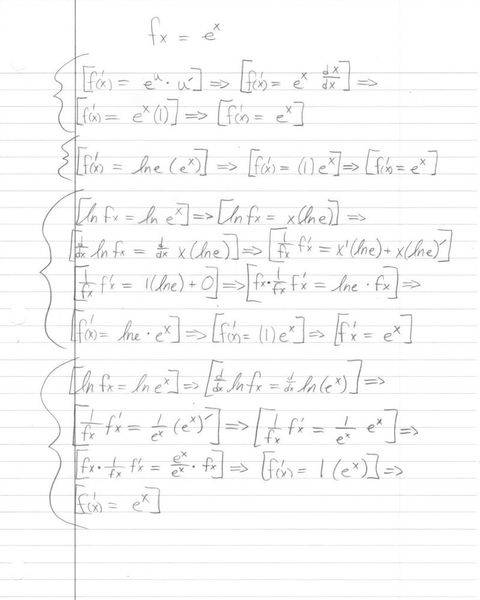 fx = e^x
[f'(x) = e^u · u'] ⇒ [f'(x) = e^x dx/dx] ⇒
[f'(x) = e^x (1)] ⇒ [f'(x) = e^x]
[f'(x) = ln e (e^x)] ⇒ [f'(x) = (1) e^x] ⇒ [f'(x) = e^x]
[ln fx = ln e^x] ⇒ [ln fx = x(ln e)] ⇒
[d/dx ln fx = d/dx x(ln e)] ⇒ [1/fx f'x = x'(ln e) + x(ln e)']
[1/fx f'x = 1(ln e) + 0] ⇒ [fx · 1/fx f'x = ln e · fx] ⇒
[f'(x) = ln e · e^x] ⇒ [f'(x) = (1) e^x] ⇒ [f'x = e^x]
[ln fx = ln e^x] ⇒ [d/dx ln fx = d/dx ln(e^x)] ⇒
[1/fx f'x = 1/e^x (e^x)'] ⇒ [1/fx f'x = 1/e^x e^x] ⇒
[fx · 1/fx f'x = e^x/e^x · fx] ⇒ [f'(x) = 1 (e^x)] ⇒
[f'(x) = e^x]